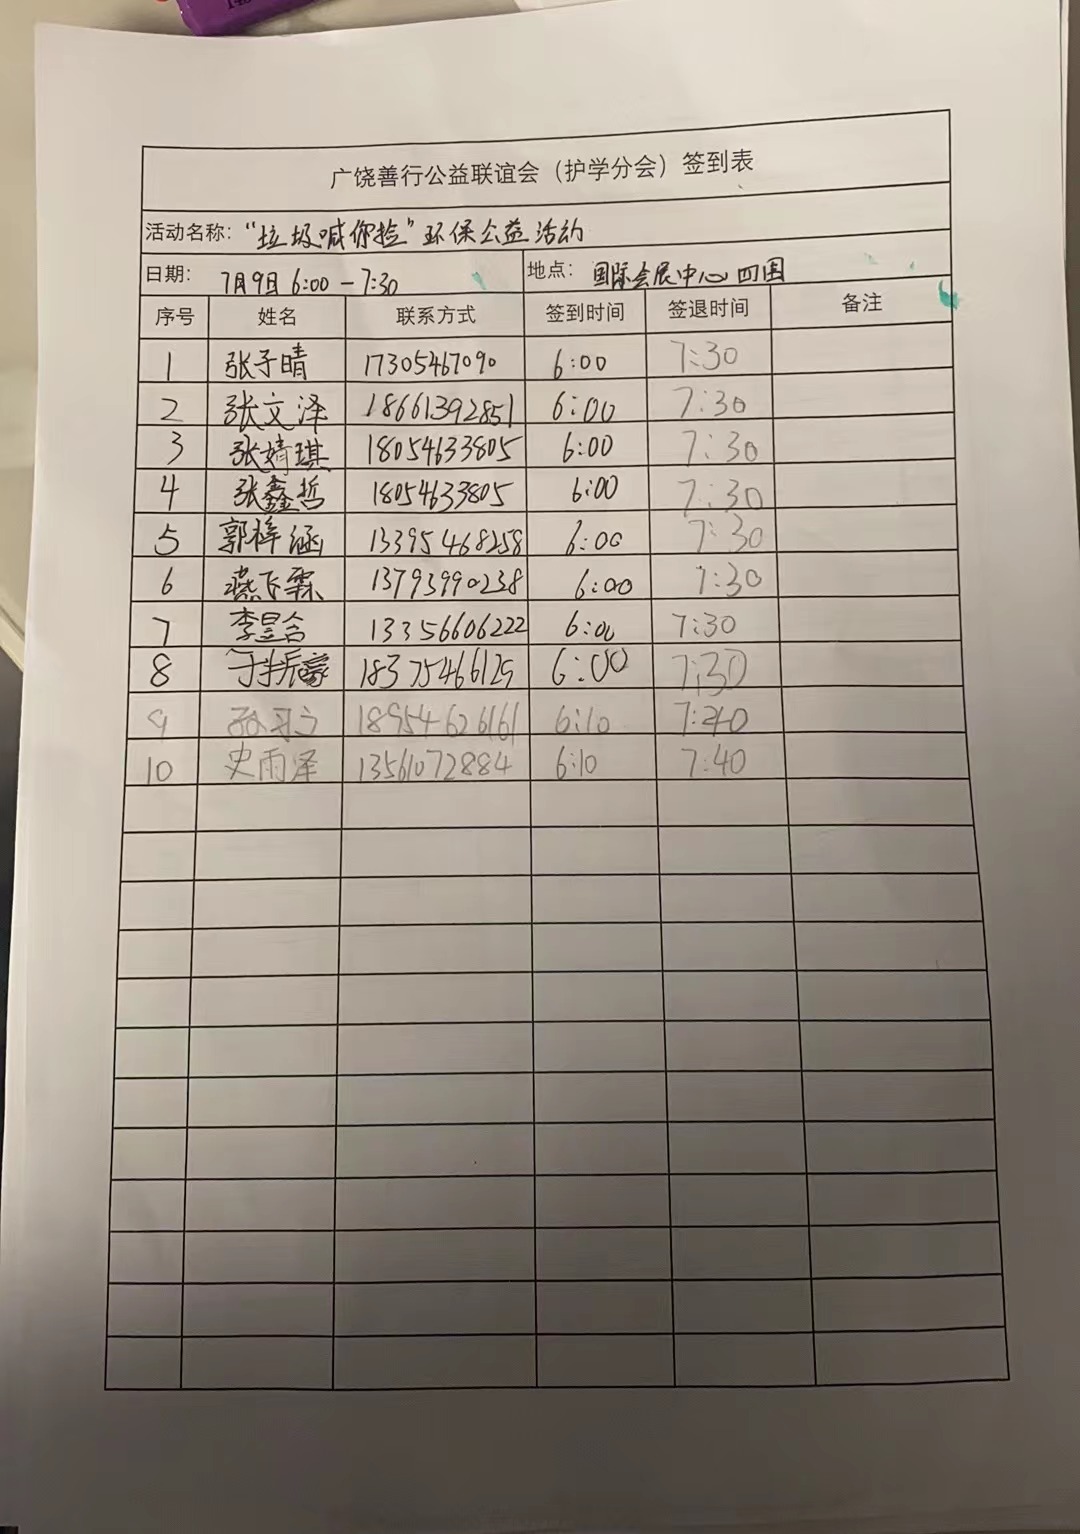 广饶善行公益联谊会（护学分会）签到表
活动名称："垃圾喊你捡"环保公益活动
日期： 7月9日 6:00-7:30 地点： 国际会展中心四周
序号 姓名 联系方式 签到时间 签退时间 备注
1 张子晴 17305467090 6:00 7:30
2 张文泽 18661392851 6:00 7:30
3 张婧琪 18054633805 6:00 7:30
4 张鑫哲 18054633805 6:00 7:30
5 郭梓涵 13395468258 6:00 7:30
6 燕飞霖 13793990238 6:00 7:30
7 李昱含 13356606222 6:00 7:30
8 18375466125 6:00 7:30
9 18954626161 6:10 7:40
10 史雨泽 13561072884 6:10 7:40